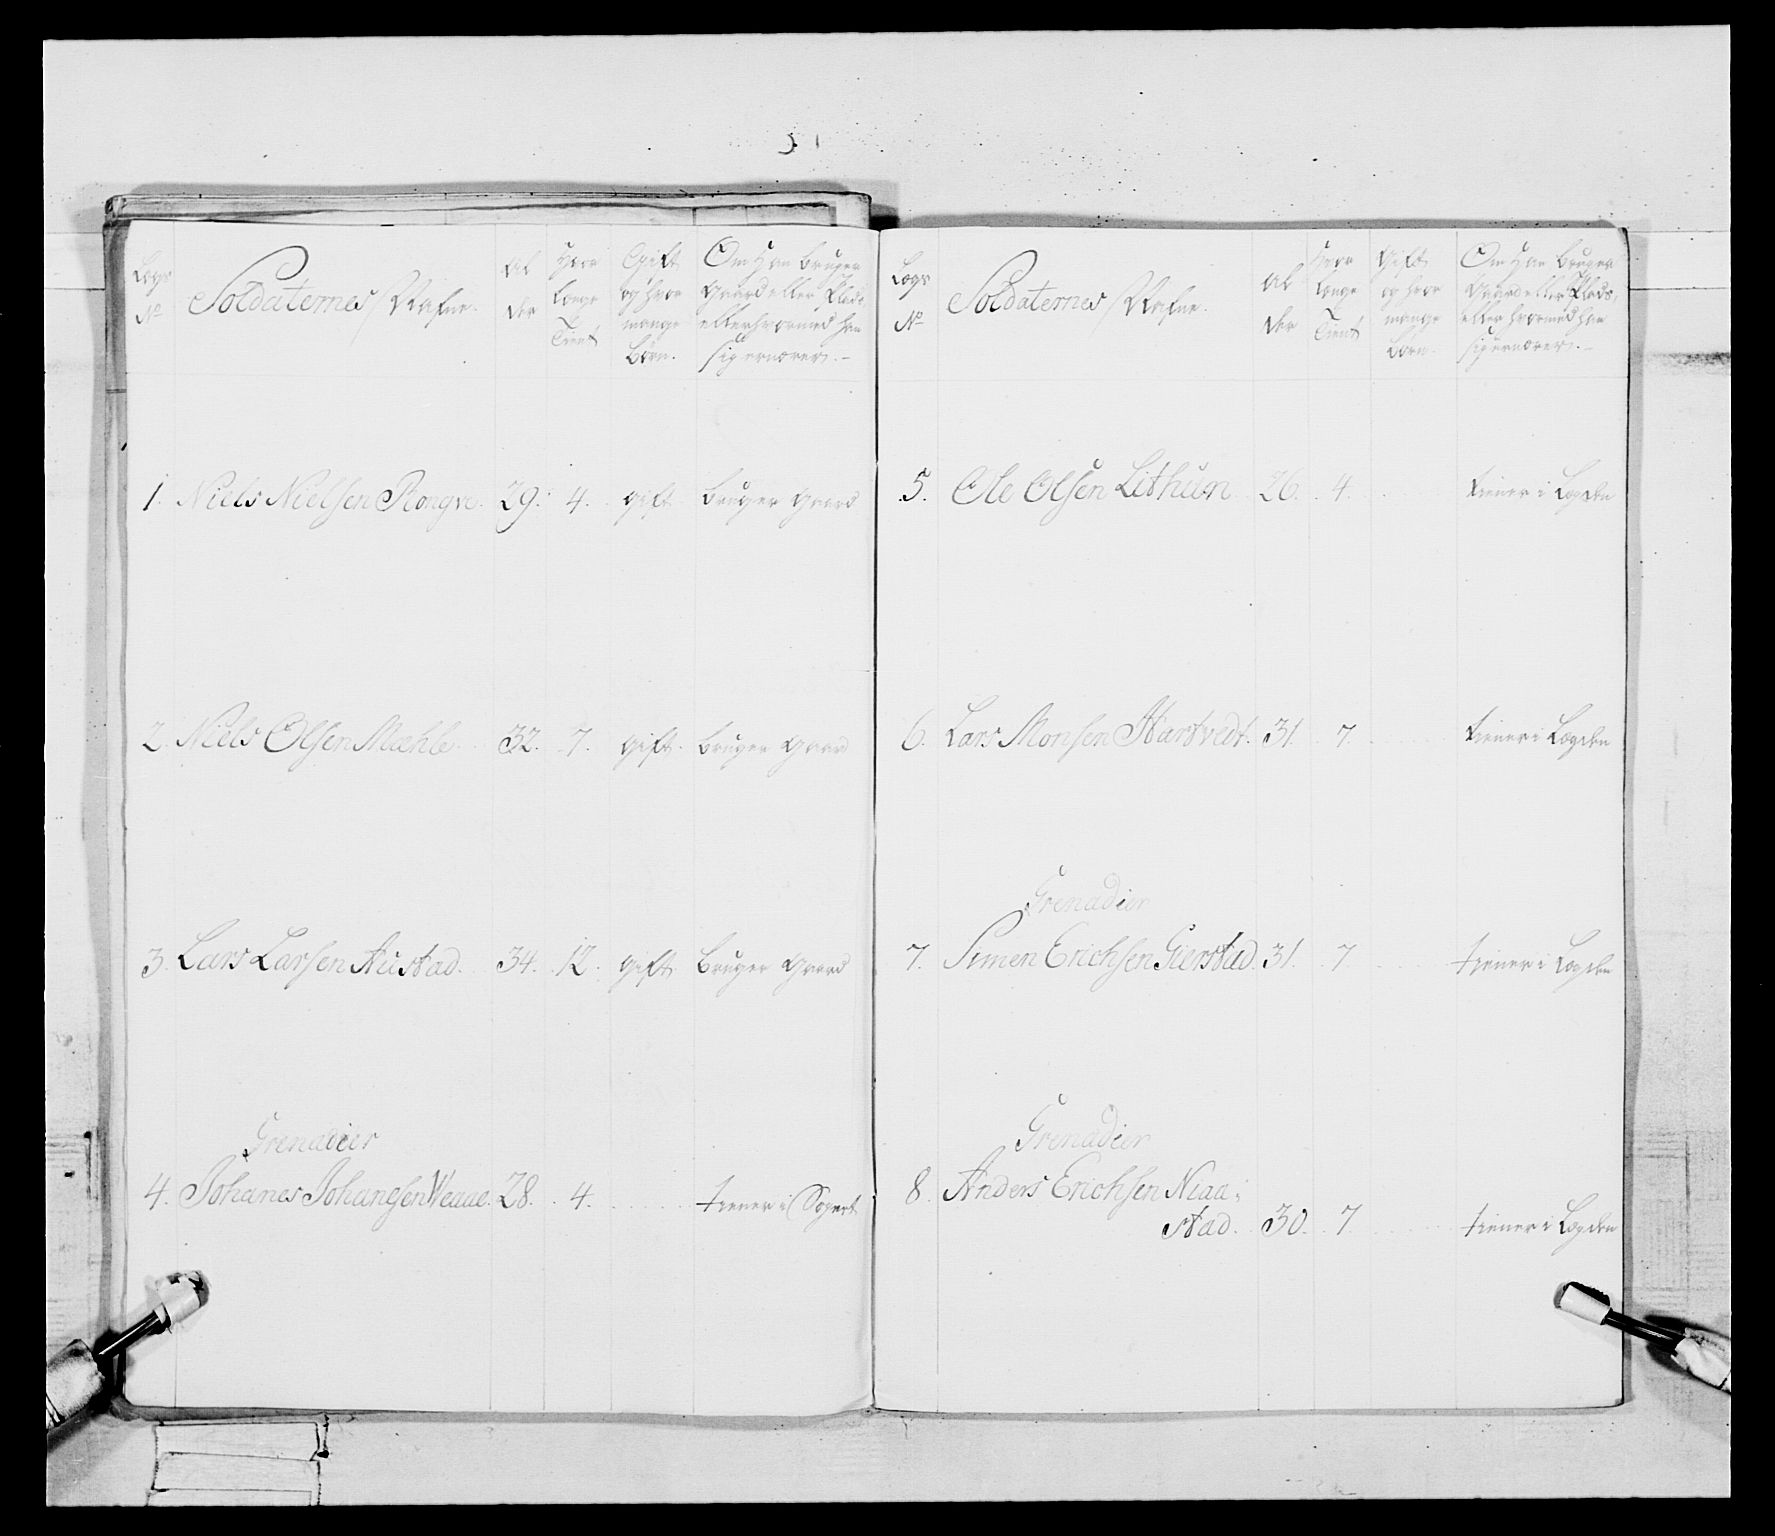 Lægs No
Soldaternes Nafne.
Al der
Hvor længe Tient
Gift og hvor mange Børn.
Om Han bruger Gaard eller Plads, eller hvormed han sig ernærer.
1. Niels Nielsen Rongve. 29. 4. gift bruger Gaard
2. Niels Olsen Mæhle. 32. 7. gift. bruger Gaard
3. Lars Larsen Austad. 34. 12. gift. bruger Gaard
Grenadeer
4. Johanes Johanesen Weaae. 28. 4. tiener i
Lægs No
Soldaternes Nafne.
Al der
Hvor længe Tient
Gift og hvor mange Børn.
Om Han bruger Gaard eller Plads, eller hvormed han sig ernærer.
5. Ole Olsen Lithun 26. 4 tiener i Lægden
6. Lars Monsen Hartvedt. 31. 7 tiener i Lægden
Grenadeer
7. Simen Erichsen Gierstad. 31. 7 tiener i Lægden
Grenadeer
8. Anders Erichsen Niaa-
stad. 30. 7. tiener i Lægden